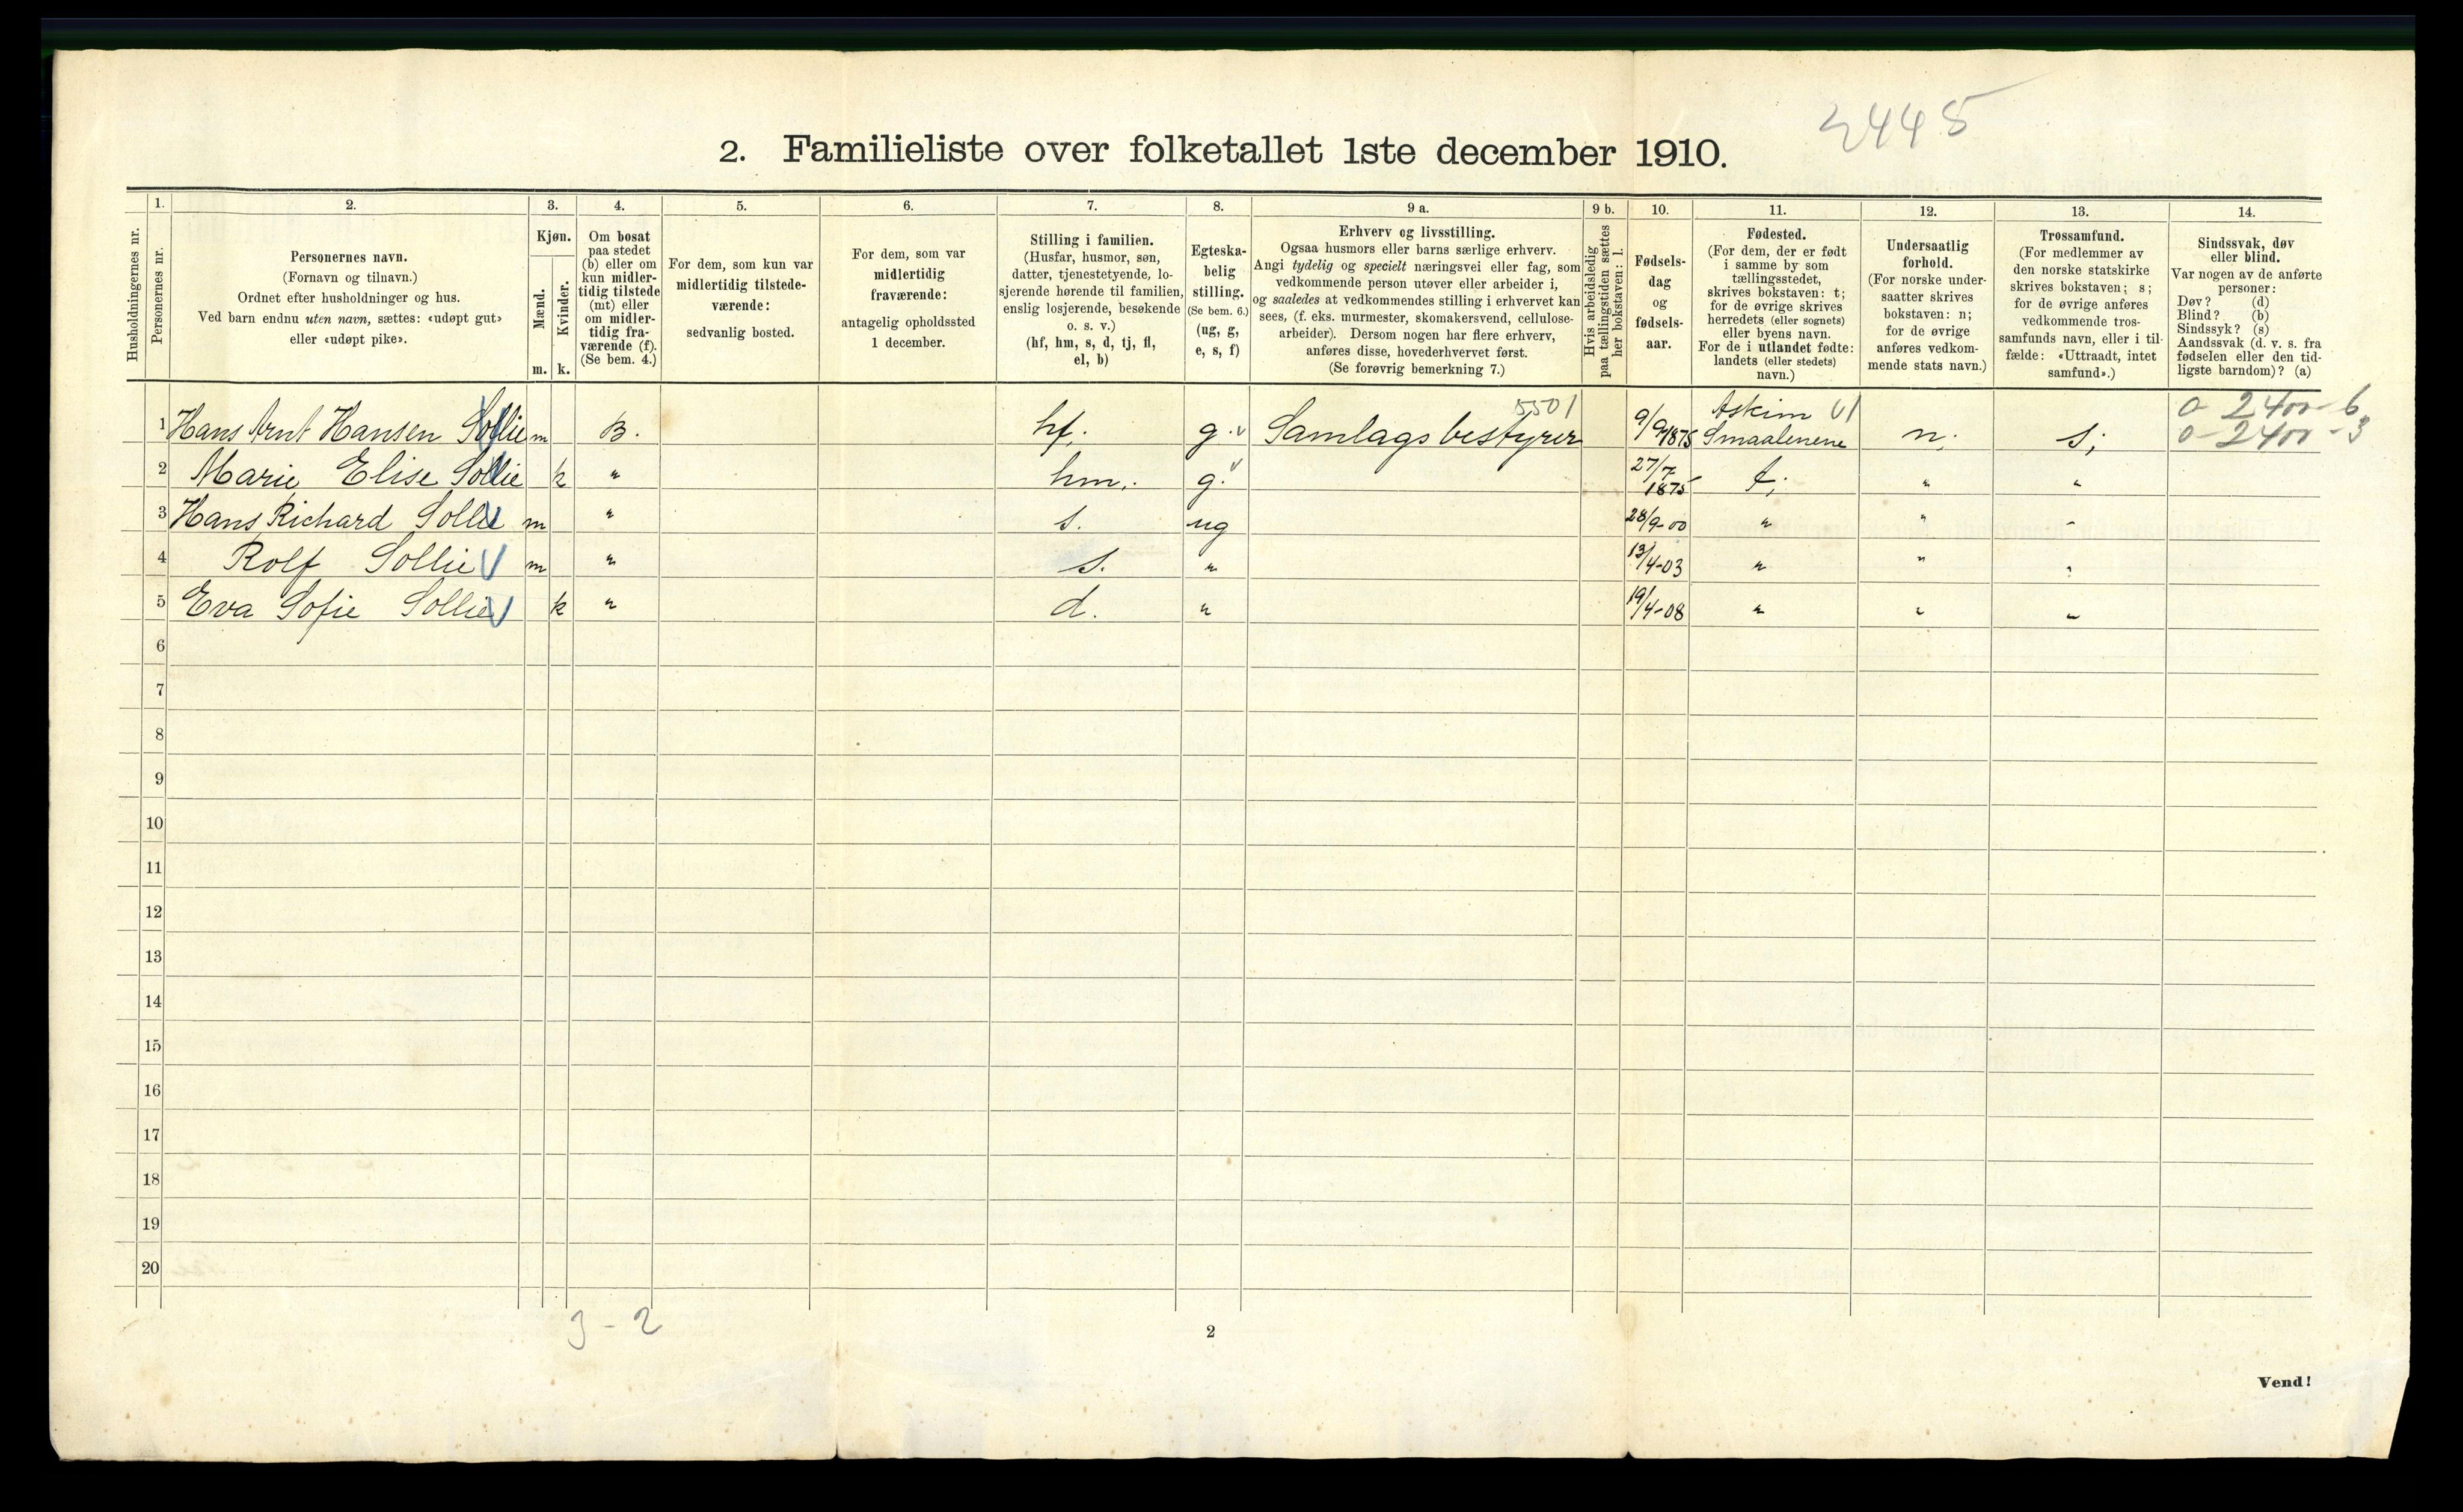 2445
2. Familieliste over folketallet 1ste december 1910.
Husholdningernes nr.
1.
Personernes nr.
2.
Personernes navn.
(Fornavn og tilnavn.)
Ordnet efter husholdninger og hus.
Ved barn endnu uten navn, sættes: «udøpt gut»
eller «udøpt pike».
3.
Kjøn.
Mænd.
Kvinder.
m. k.
4.
Om bosat
paa stedet
(b) eller om
kun midler-
tidig tilstede
(mt) eller
om midler-
tidig fra-
værende (f).
(Se bem. 4.)
5.
For dem, som kun var
midlertidig tilstede-
værende:
sedvanlig bosted.
6.
For dem, som var
midlertidig
fraværende:
antagelig opholdssted
1 december.
7.
Stilling i familien.
(Husfar, husmor, søn,
datter, tjenestetyende, lo-
sjerende hørende til familien,
enslig losjerende, besøkende
o. s. v.)
(hf, hm, s, d, tj, fl,
el, b)
8.
Egteska-
belig
stilling.
(Se bem. 6.)
(ug, g,
e, s, f)
9 a.
Erhverv og livsstilling.
Ogsaa husmors eller barns særlige erhverv.
Angi tydelig og specielt næringsvei eller fag, som
vedkommende person utøver eller arbeider i,
og saaledes at vedkommendes stilling i erhvervet kan
sees, (f. eks. murmester, skomakersvend, cellulose-
arbeider). Dersom nogen har flere erhverv,
anføres disse, hovederhvervet først.
(Se forøvrig bemerkning 7.)
9 b.
Hvis arbeidsledig
paa tællingstiden sættes
her bokstaven: l.
10.
Fødsels-
dag
og
fødsels-
aar.
11.
Fødested.
(For dem, der er født
i samme by som
tællingsstedet,
skrives bokstaven: t;
for de øvrige skrives
herredets (eller sognets)
eller byens navn.
For de i utlandet fødte:
landets (eller stedets)
navn.)
12.
Undersaatlig
forhold.
(For norske under-
saatter skrives
bokstaven: n;
for de øvrige
anføres vedkom-
mende stats navn.)
13.
Trossamfund.
(For medlemmer av
den norske statskirke
skrives bokstaven: s;
for de øvrige anføres
vedkommende tros-
samfunds navn, eller i til-
fælde: «Uttraadt, intet
samfund».)
14.
Sindssvak, døv
eller blind.
Var nogen av de anførte
personer:
Døv? (d)
Blind? (b)
Sindssyk? (s)
Aandssvak (d. v. s. fra
fødselen eller den tid-
ligste barndom)? (a)
5501 Askim 0-2400-6
1 Hans Arnt Hansen Sollie m B. hf. g. Samlagsbestyrer 9/9 1875 Smaalenene n. s; 0-2400-3
2 Marie Elise Sollie k " hm. g. 27/7 1875 t; " "
3 Hans Richard Sollie m " s. ug 28/9-00 " " "
4 Rolf Sollie m " s. " 13/4-03 " " "
5 Eva Sofie Sollie k " d. " 19/4-08 " " "
6
7
8
9
10
11
12
13
14
15
16
17
18
19
20
3-2
2
Vend!